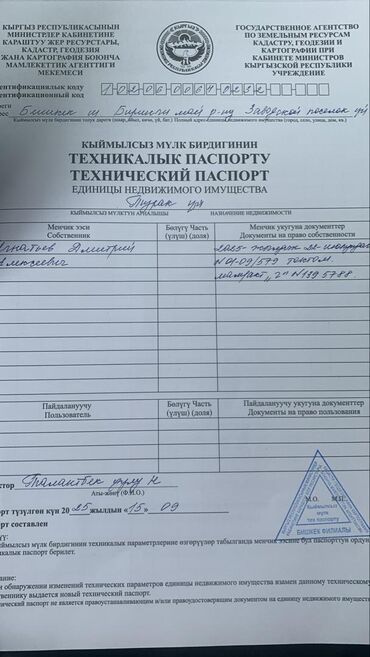 КЫРГЫЗ РЕСПУБЛИКАСЫНЫН
МИНИСТРЛЕР КАБИНЕТИНЕ
КАРАШТУУ ЖЕР РЕСУРСТАРЫ,
КАДАСТР, ГЕОДЕЗИЯ
ЖАНА КАРТОГРАФИЯ БОЮНЧА
МАМЛЕКЕТТИК АГЕНТТИГИ
МЕКЕМЕСИ
ГОСУДАРСТВЕННОЕ АГЕНТСТВО
ПО ЗЕМЕЛЬНЫМ РЕСУРСАМ
КАДАСТРУ, ГЕОДЕЗИИ И
КАРТОГРАФИИ ПРИ
КАБИНЕТЕ МИНИСТРОВ
КЫРГЫЗСКОЙ РЕСПУБЛИКИ
УЧРЕЖДЕНИЕ
ентификациялык коду
ентификационный код
Бишкек ш Биринчи май р-ну Заводской поселок
КЫЙМЫЛСЫЗ МҮЛК БИРДИГИНИН
ТЕХНИКАЛЫК ПАСПОРТУ
ТЕХНИЧЕСКИЙ ПАСПОРТ
ЕДИНИЦЫ НЕДВИЖИМОГО ИМУЩЕСТВА
Турак үй
КЫЙМЫЛСЫЗ МҮЛКТҮН АРНАЛЫШЫ НАЗНАЧЕНИЕ НЕДВИЖИМОСТИ
Менчик ээси
Собственник
Бөлүгү Часть
(үлүш) (доля)
Менчик укугуна документтер
Документы на право собственности
гнатьев Дмитрий
2025-жылдын 22-
№ 01-09/579 токтом.
№ 1395788.
Пайдалануучу
Пользователь
Бөлүгү Часть
(үлүш) (доля)
Пайдалануучу укугуна документтер
Документы на право пользования
Талантбек уулу Н
Аты-жөнү (Ф.И.О.)
М.О. М.П.
Кыймылсыз
мүлк
тех паспорту
БИШКЕК ФИЛИАЛЫ
орт түзүлгөн күн 2025 жылдын «15» 09
орт составлен
и обнаружении изменений технических параметров единицы недвижимого имущества взамен данному техническому
твеннику выдается новый технический паспорт.
нический паспорт не является правоустанавливающим и/или правоудостоверяющим документом на единицу недвижимого имущества